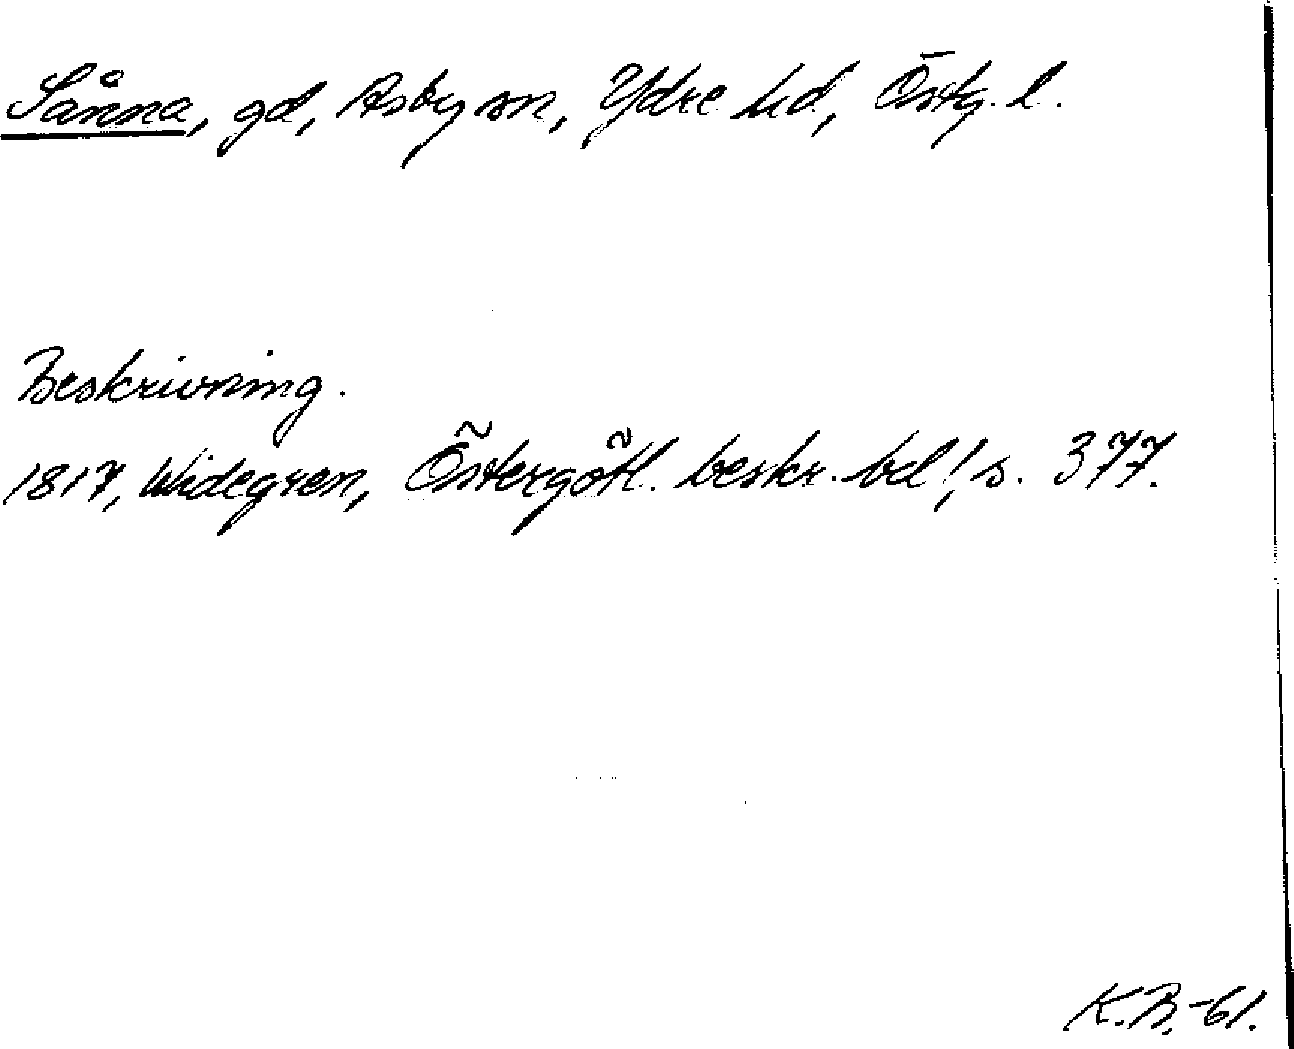 Sånna, gd, Asby sn, Ydre hd, Östg. l.
Beskrivning.
1817, Widegren, Östergötl. beskr. bd 1, s. 377.
K.B.-61.